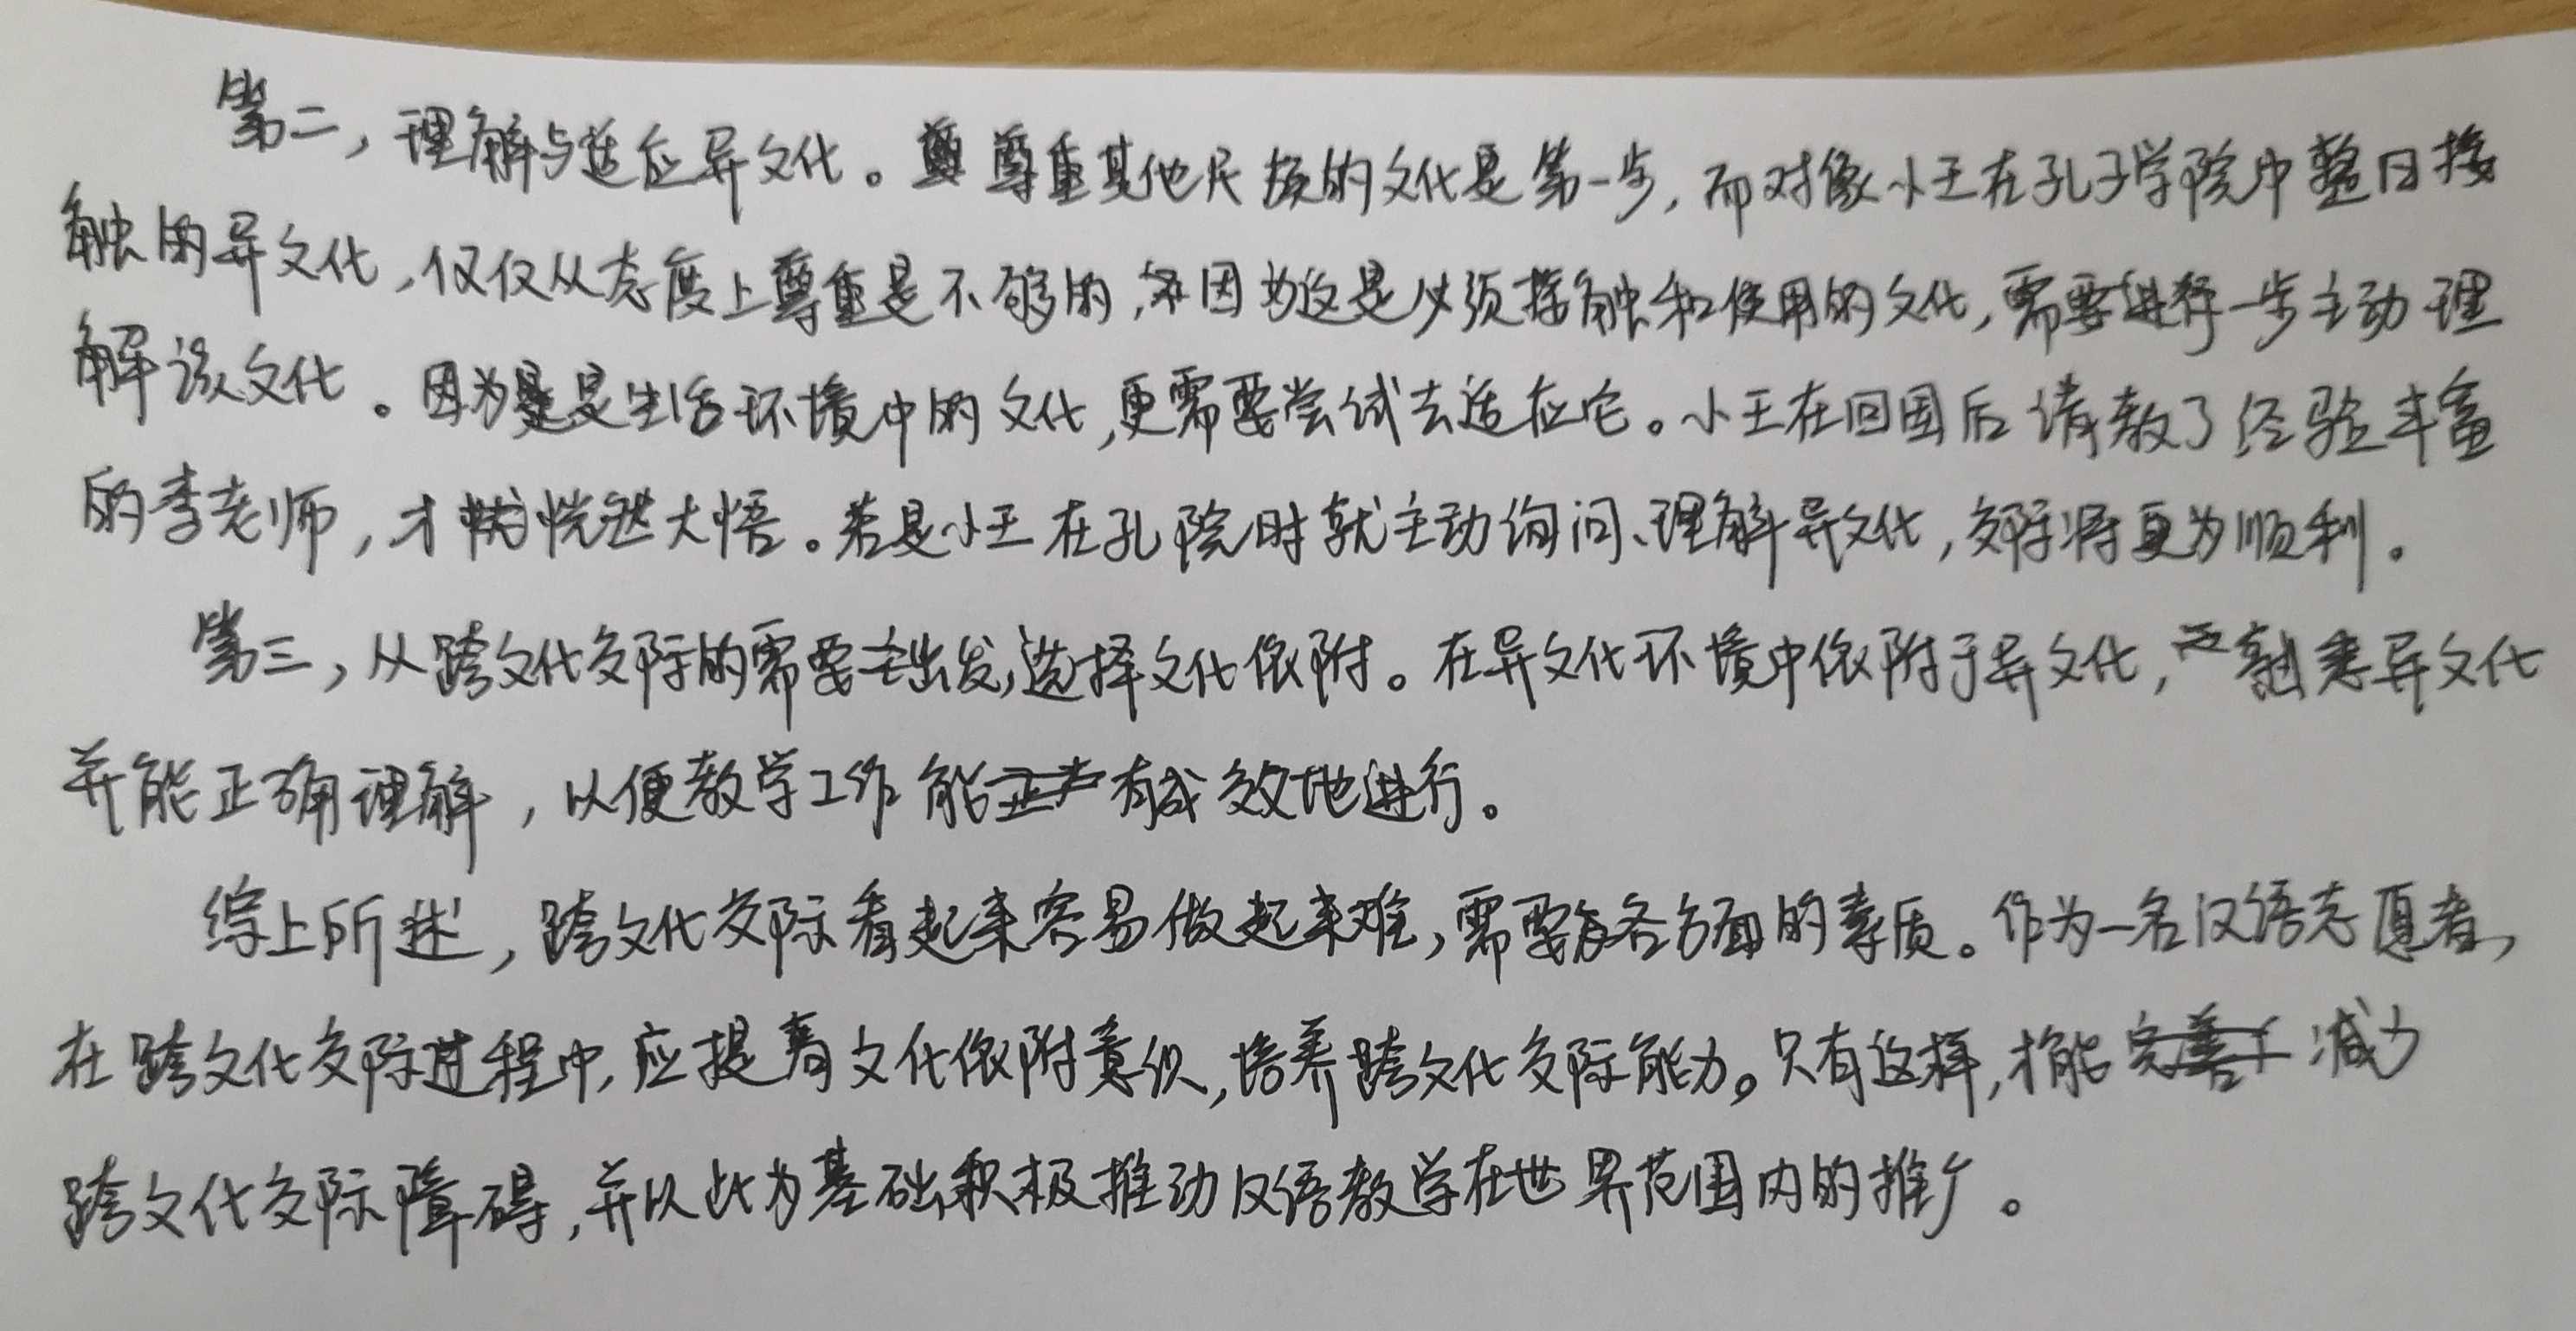 第二，理解与适应异文化。尊重其他民族的文化是第一步，而对像小王在孔子学院中整日接
触的异文化，仅仅从态度上尊重是不够的，因为这是必须接触和使用的文化，需要进行一步主动理
解该文化。因为是生活环境中的文化，更需要尝试去适应它。小王在回国后请教了经验丰富
的李老师，才恍然大悟。若是小王在孔院时就主动询问、理解异文化，交际将更为顺利。
第三，从跨文化交际的需要出发，选择文化依附。在异文化环境中依附于异文化，熟悉异文化
并能正确理解，以便教学工作能有成效地进行。
综上所述，跨文化交际看起来容易做起来难，需要各方面的素质。作为一名汉语志愿者，
在跨文化交际过程中，应提高文化依附意识，培养跨文化交际能力。只有这样，才能减少
跨文化交际障碍，并以此为基础积极推动汉语教学在世界范围内的推广。